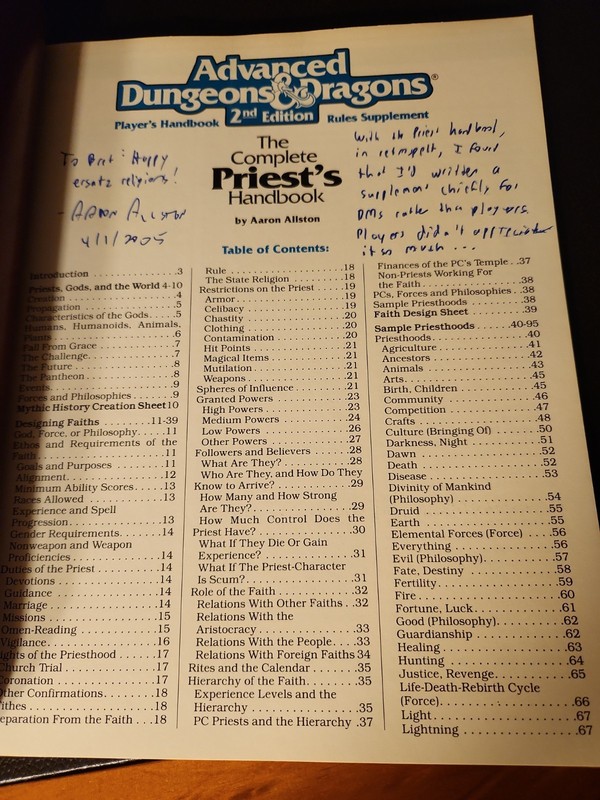 Advanced
Dungeons & Dragons®
2nd Edition
Player's Handbook
Rules Supplement
The
Complete
Priest's
Handbook
by Aaron Allston
To Bret: Happy
ersatz religions!
- AARON ALLSTON
4/1/2005
With the Priest handbook,
in retrospect, I found
that I'd written a
supplement chiefly for
DMs rather than players.
Players didn't appreciate
it so much ...
Table of Contents:
Introduction . . . . . . . . . . . . . . .3
Priests, Gods, and the World 4-10
Creation . . . . . . . . . . . . . . . . .4
Propagation . . . . . . . . . . . . . .5
Characteristics of the Gods. . . . .5
Humans, Humanoids, Animals,
Plants. . . . . . . . . . . . . . . . . . .6
Fall From Grace . . . . . . . . . . . .7
The Challenge. . . . . . . . . . . . . .7
The Future . . . . . . . . . . . . . . . .8
The Pantheon . . . . . . . . . . . . . .8
Events. . . . . . . . . . . . . . . . . . .9
Forces and Philosophies . . . . . . .9
Mythic History Creation Sheet10
Designing Faiths . . . . . . . .11-39
God, Force, or Philosophy. . . . .11
Ethos and Requirements of the
Faith. . . . . . . . . . . . . . . . . . .11
Goals and Purposes . . . . . . . . .11
Alignment. . . . . . . . . . . . . . . .12
Minimum Ability Scores. . . . . .13
Races Allowed . . . . . . . . . . . .13
Experience and Spell
Progression. . . . . . . . . . . . . .13
Gender Requirements. . . . . . . .14
Nonweapon and Weapon
Proficiencies . . . . . . . . . . . . .14
Duties of the Priest . . . . . . . . .14
Devotions . . . . . . . . . . . . . . .14
Guidance . . . . . . . . . . . . . . . .14
Marriage . . . . . . . . . . . . . . . .14
Missions . . . . . . . . . . . . . . . .15
Omen-Reading . . . . . . . . . . . .15
Vigilance. . . . . . . . . . . . . . . .16
ights of the Priesthood . . . . . .17
Church Trial . . . . . . . . . . . . . .17
oronation . . . . . . . . . . . . . . .17
ther Confirmations. . . . . . . . . .18
ithes . . . . . . . . . . . . . . . . . .18
eparation From the Faith . . . .18
Rule . . . . . . . . . . . . . . . . . . .18
The State Religion . . . . . . . . . .18
Restrictions on the Priest . . . . .19
Armor. . . . . . . . . . . . . . . . . .19
Celibacy . . . . . . . . . . . . . . . .19
Chastity . . . . . . . . . . . . . . . .20
Clothing . . . . . . . . . . . . . . . .20
Contamination . . . . . . . . . . . .20
Hit Points . . . . . . . . . . . . . . .21
Magical Items . . . . . . . . . . . .21
Mutilation . . . . . . . . . . . . . . .21
Weapons . . . . . . . . . . . . . . . .21
Spheres of Influence . . . . . . . .21
Granted Powers . . . . . . . . . . .23
High Powers . . . . . . . . . . . . .23
Medium Powers . . . . . . . . . . .24
Low Powers . . . . . . . . . . . . . .26
Other Powers . . . . . . . . . . . . .27
Followers and Believers . . . . . .28
What Are They? . . . . . . . . . . .28
Who Are They, and How Do They
Know to Arrive? . . . . . . . . . . .29
How Many and How Strong
Are They?. . . . . . . . . . . . . . .29
How Much Control Does the
Priest Have? . . . . . . . . . . . . .30
What If They Die or Gain
Experience? . . . . . . . . . . . . .31
What If The Priest-Character
Is Scum?. . . . . . . . . . . . . . . .31
Role of the Faith . . . . . . . . . . .32
Relations With Other Faiths. . .32
Relations With the
Aristocracy . . . . . . . . . . . . . .33
Relations With the People. . . .33
Relations With Foreign Faiths 34
Rites and the Calendar . . . . . . .35
Hierarchy of the Faith. . . . . . . .35
Experience Levels and the
Hierarchy . . . . . . . . . . . . . . .35
PC Priests and the Hierarchy .37
Finances of the PC's Temple . .37
Non-Priests Working For
the Faith . . . . . . . . . . . . . . . .38
PCs, Forces and Philosophies . .38
Sample Priesthoods . . . . . . . . .38
Faith Design Sheet . . . . . . . . .39
Sample Priesthoods . . . . . .40-95
Priesthoods. . . . . . . . . . . . . . .40
Agriculture . . . . . . . . . . . . . .41
Ancestors . . . . . . . . . . . . . . .42
Animals . . . . . . . . . . . . . . . .43
Arts. . . . . . . . . . . . . . . . . . .45
Birth, Children . . . . . . . . . . . .45
Community . . . . . . . . . . . . . .46
Competition . . . . . . . . . . . . .47
Crafts . . . . . . . . . . . . . . . . .48
Culture (Bringing Of) . . . . . . .50
Darkness, Night . . . . . . . . . . .51
Dawn . . . . . . . . . . . . . . . . . .52
Death . . . . . . . . . . . . . . . . .52
Disease . . . . . . . . . . . . . . . .53
Divinity of Mankind
(Philosophy) . . . . . . . . . . . . .54
Druid . . . . . . . . . . . . . . . . . .55
Earth . . . . . . . . . . . . . . . . . .55
Elemental Forces (Force) . . . .56
Everything . . . . . . . . . . . . . .56
Evil (Philosophy). . . . . . . . . . .57
Fate, Destiny . . . . . . . . . . . . .58
Fertility. . . . . . . . . . . . . . . . .59
Fire . . . . . . . . . . . . . . . . . . .60
Fortune, Luck. . . . . . . . . . . . .61
Good (Philosophy). . . . . . . . . .62
Guardianship . . . . . . . . . . . . .62
Healing . . . . . . . . . . . . . . . .63
Hunting . . . . . . . . . . . . . . . .64
Justice, Revenge. . . . . . . . . . .65
Life-Death-Rebirth Cycle
(Force). . . . . . . . . . . . . . . . .66
Light. . . . . . . . . . . . . . . . . .67
Lightning . . . . . . . . . . . . . . .67